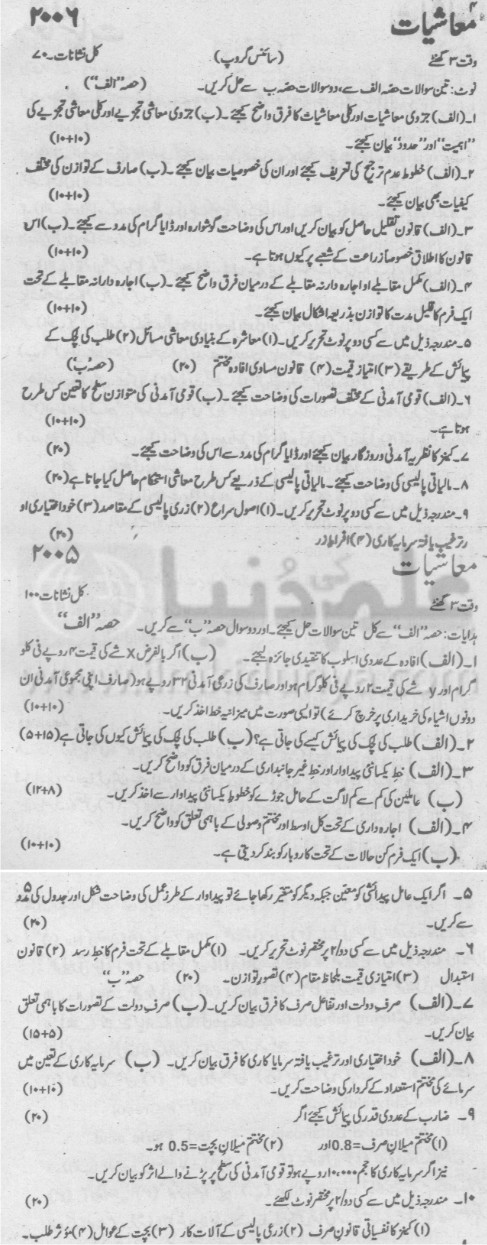 معاشیات ۲۰۰۶
وقت ۳ گھنٹے (سائنس گروپ) کل نشانات۔ ۷۰
نوٹ: تین سوالات حصہ الف سے، دو سوالات حصہ ب سے حل کریں۔ (حصہ "الف")
۱۔ (الف) جزوی معاشیات اور کلی معاشیات کا فرق واضح کیجئے۔ (ب) جزوی معاشی تجزیے اور کلی معاشی تجزیے کی
"اہمیت" اور "حدود" بیان کیجئے۔ (۱۰+۱۰)
۲۔ (الف) خطوط عدم ترجیح کی تعریف کیجئے اور ان کی خصوصیات بیان کیجئے۔ (ب) صارف کے توازن کی مختلف
کیفیات بھی بیان کیجئے۔ (۱۰+۱۰)
۳۔ (الف) قانون تقلیل حاصل کو بیان کریں اور اس کی وضاحت گوشوارہ اور ڈایا گرام کی مدد سے کیجئے۔ (ب) اس
قانون کا اطلاق خصوصاً زراعت کے شعبے پر کیوں ہوتا ہے۔ (۱۰+۱۰)
۴۔ (الف) مکمل مقابلے او اجارہ دارنہ مقابلے کے درمیان فرق واضح کیجئے۔ (ب) اجارہ دارانہ مقابلے کے تحت
ایک فرم کا قلیل مدت کا توازن بذریعہ اشکال بیان کیجئے۔ (۱۰+۱۰)
۵۔ مندرجہ ذیل میں سے کسی دو پر نوٹ تحریر کریں۔ (۱) معاشرہ کے بنیادی معاشی مسائل (۲) طلب کی لچک کے
پیمائش کے طریقے (۳) امتیاز قیمت (۴) قانون مساوی افادہ مختتم (۲۰) (حصہ ب)
۶۔ (الف) قومی آمدنی کے مختلف تصورات کی وضاحت کیجئے۔ (ب) قومی آمدنی کی متوازن سطح کا تعین کس طرح
ہوتا ہے۔ (۱۰+۱۰)
۷۔ کینز کا نظریہ آمدنی و روزگار بیان کیجئے اور ڈایا گرام کی مدد سے اس کی وضاحت کیجئے۔ (۲۰)
۸۔ مالیاتی پالیسی کی وضاحت کیجئے۔ مالیاتی پالیسی کے ذریعے کس طرح معاشی استحکام حاصل کیا جاتا ہے (۲۰)
۹۔ مندرجہ ذیل میں سے کسی دو پر نوٹ تحریر کریں۔ (۱) اصول سراع (۲) زری پالیسی کے مقاصد (۳) خود اختیاری او
رترغیب یافتہ سرمایہ کاری (۴) افراط زر (۲۰)
علم کی دُنیا
معاشیات ۲۰۰۵
وقت ۳ گھنٹے کل نشانات ۱۰۰
ہدایات: حصہ "الف" سے کل تین سوالات حل کیجئے۔ اور دو سوال حصہ "ب" سے کریں۔ حصہ "الف"
۱۔ (الف) افادہ کے عددی اسلوب کا تنقیدی جائزہ لیجئے۔ (ب) اگر بالفرض x شے کی قیمت ۴ روپے فی کلو
گرام اور y شے کی قیمت ۲ روپے فی کلو گرام ہو اور صارف کی زرعی آمدنی ۳۲ روپے ہو (صارف اپنی مجموعی آمدنی ان
دونوں اشیاء کی خریداری پر خرچ کرے) تو ایسی صورت میں میزانیہ خط اخذ کریں۔ (۱۰+۱۰)
۲۔ (الف) طلب کی لچک کی پیمائش کیسے کی جاتی ہے؟ (ب) طلب کی لچک کی پیمائش کیوں کی جاتی ہے (۱۵+۵)
۳۔ (الف) خط یکسانئی پیداوار اور خط غیر جانبداری کے درمیان فرق کو واضح کریں۔
(ب) عاملین کی کم سے کم لاگت کے حامل جوڑے کو خطوط یکسانئی پیداوار سے اخذ کریں۔ (۱۲+۸)
۴۔ (الف) اجارہ داری کے تحت کل اوسط اور مختتم وصولی کے باہمی تعلق کو واضح کریں۔
(ب) ایک فرم کن حالات کے تحت کاروبار کو بند کر دیتی ہے۔ (۱۰+۱۰)
۵۔ اگر ایک عامل پیدائش کو معین جبکہ دیگر کو متغیر رکھا جائے تو پیداوار کے طرز عمل کی وضاحت شکل اور جدول کی مدد
سے کریں۔ (۲۰)
۶۔ مندرجہ ذیل میں سے کسی دو/۲ پر مختصر نوٹ تحریر کریں۔ (۱) مکمل مقابلے کے تحت فرم کا خط رسد (۲) قانون
استبدال (۳) امتیازی قیمت بلحاظ مقام (۴) تصور توازن۔ (۲۰) حصہ "ب"
۷۔ (الف) صرف دولت اور تفاعل صرف کا فرق بیان کریں۔ (ب) صرف دولت کے تصورات کا باہمی تعلق
بیان کریں۔ (۱۵+۵)
۸۔ (الف) خود اختیاری اور ترغیب یافتہ سرمایا کاری کا فرق بیان کریں۔ (ب) سرمایہ کاری کے تعین میں
سرمائے کی مختتم استعداد کے کردار کی وضاحت کریں۔ (۱۰+۱۰)
۹۔ ضارب کے عددی قدر کی پیمائش کیجئے اگر (۲۰)
(۱) مختتم میلان صرف=0.8 اور (۲) مختتم میلان بچت=0.5 ہو۔
نیز اگر سرمایہ کاری کا حجم ۱۰,۰۰۰ روپے ہو تو قومی آمدنی کی سطح پر پڑنے والے اثر کو بیان کریں۔
۱۰۔ مندرجہ ذیل میں سے کسی دو/۲ پر مختصر نوٹ لکھئے۔ (۲۰)
(۱) کینز کا نفسیاتی قانون صرف (۲) زری پالیسی کے آلات کار (۳) بچت کے عوامل (۴) مؤثر طلب۔